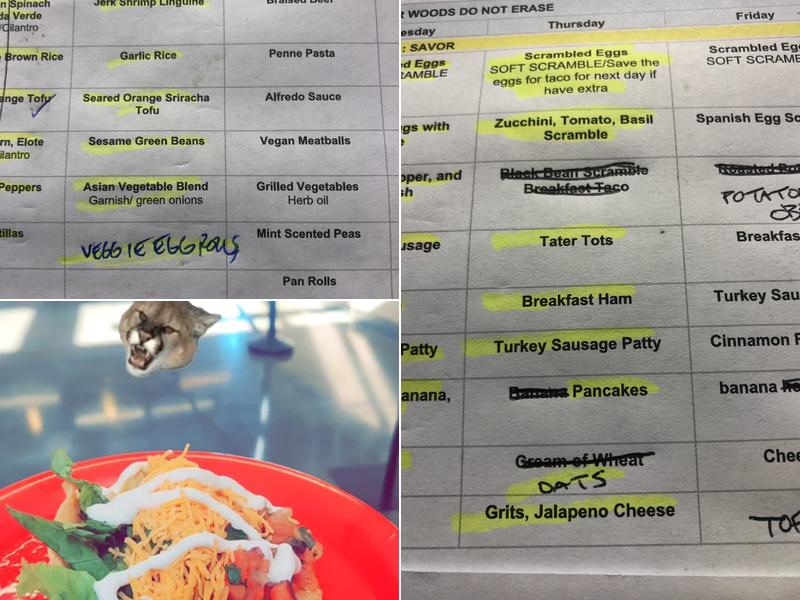 n Spinach
da Verde
/Cilantro
Jerk Shrimp Linguine
Braised Beef
Brown Rice
Garlic Rice
Penne Pasta
ange Tofu
Seared Orange Sriracha
Tofu
Alfredo Sauce
rn, Elote
ilantro
Sesame Green Beans
Vegan Meatballs
Peppers
Asian Vegetable Blend
Garnish/ green onions
Grilled Vegetables
Herb oil
tillas
VEGGIE EGGROLLS
Mint Scented Peas
Pan Rolls
WOODS DO NOT ERASE
esday
Thursday
Friday
: SAVOR
ed Eggs
RAMBLE
Scrambled Eggs
SOFT SCRAMBLE/Save the
eggs for taco for next day if
have extra
Scrambled Eg
SOFT SCRAME
gs with
Zucchini, Tomato, Basil
Scramble
Spanish Egg Sc
pper, and
sh
Black Bean Scramble
Breakfast Taco
POTATO
usage
Tater Tots
Breakfas
Breakfast Ham
Turkey Sau
Patty
Turkey Sausage Patty
Cinnamon F
anana,
Banana Pancakes
banana
Cream of Wheat
OATS
Chee
Grits, Jalapeno Cheese
TOF